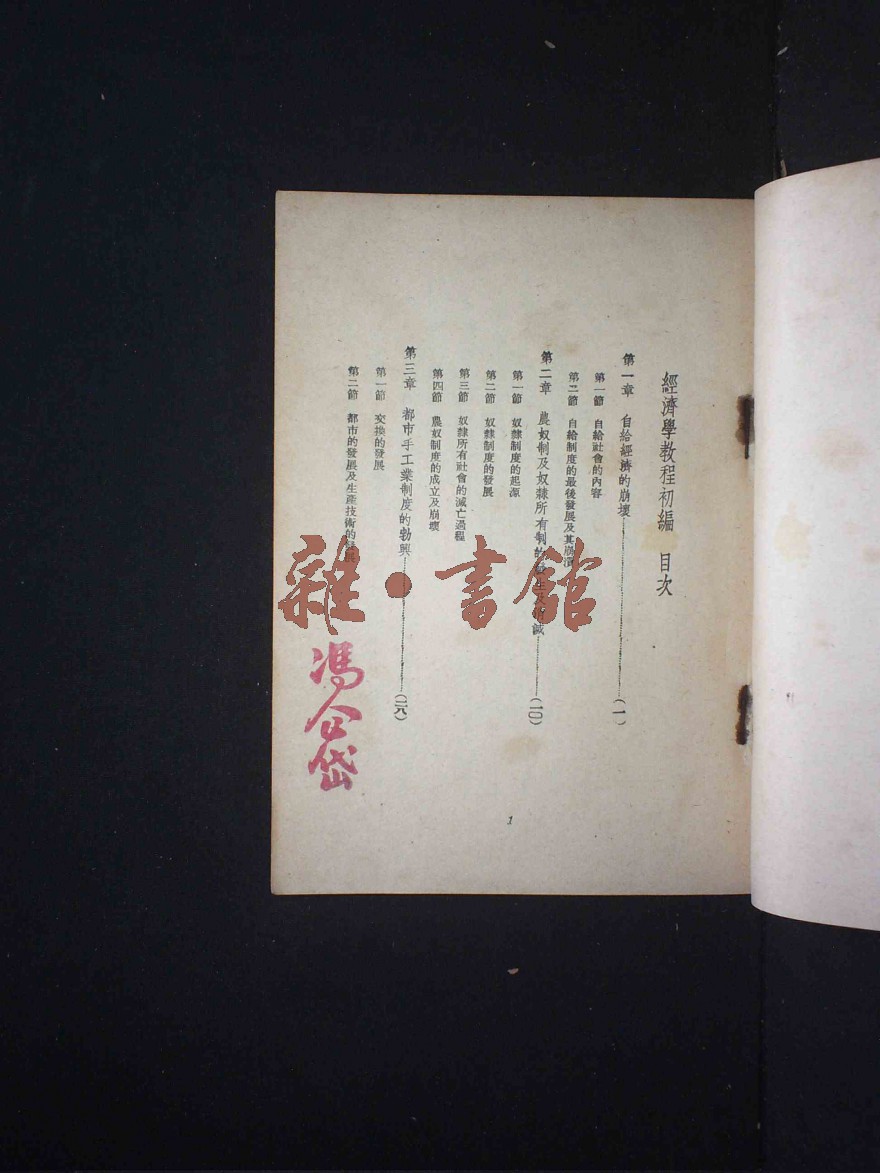 經濟學教程初編 目次
第一章 自給經濟的崩壞 (一)
第一節 自給社會的內容
第二節 自給制度的最後發展及其崩潰
第二章 農奴制及奴隸所有制的發生及消滅 (一〇)
第一節 奴隸制度的起源
第二節 奴隸制度的發展
第三節 奴隸所有社會的滅亡過程
第四節 農奴制度的成立及崩壞
第三章 都市手工業制度的勃興 (二八)
第一節 交換的發展
第二節 都市的發展及生產技術的發展
1
雜·書館
馮